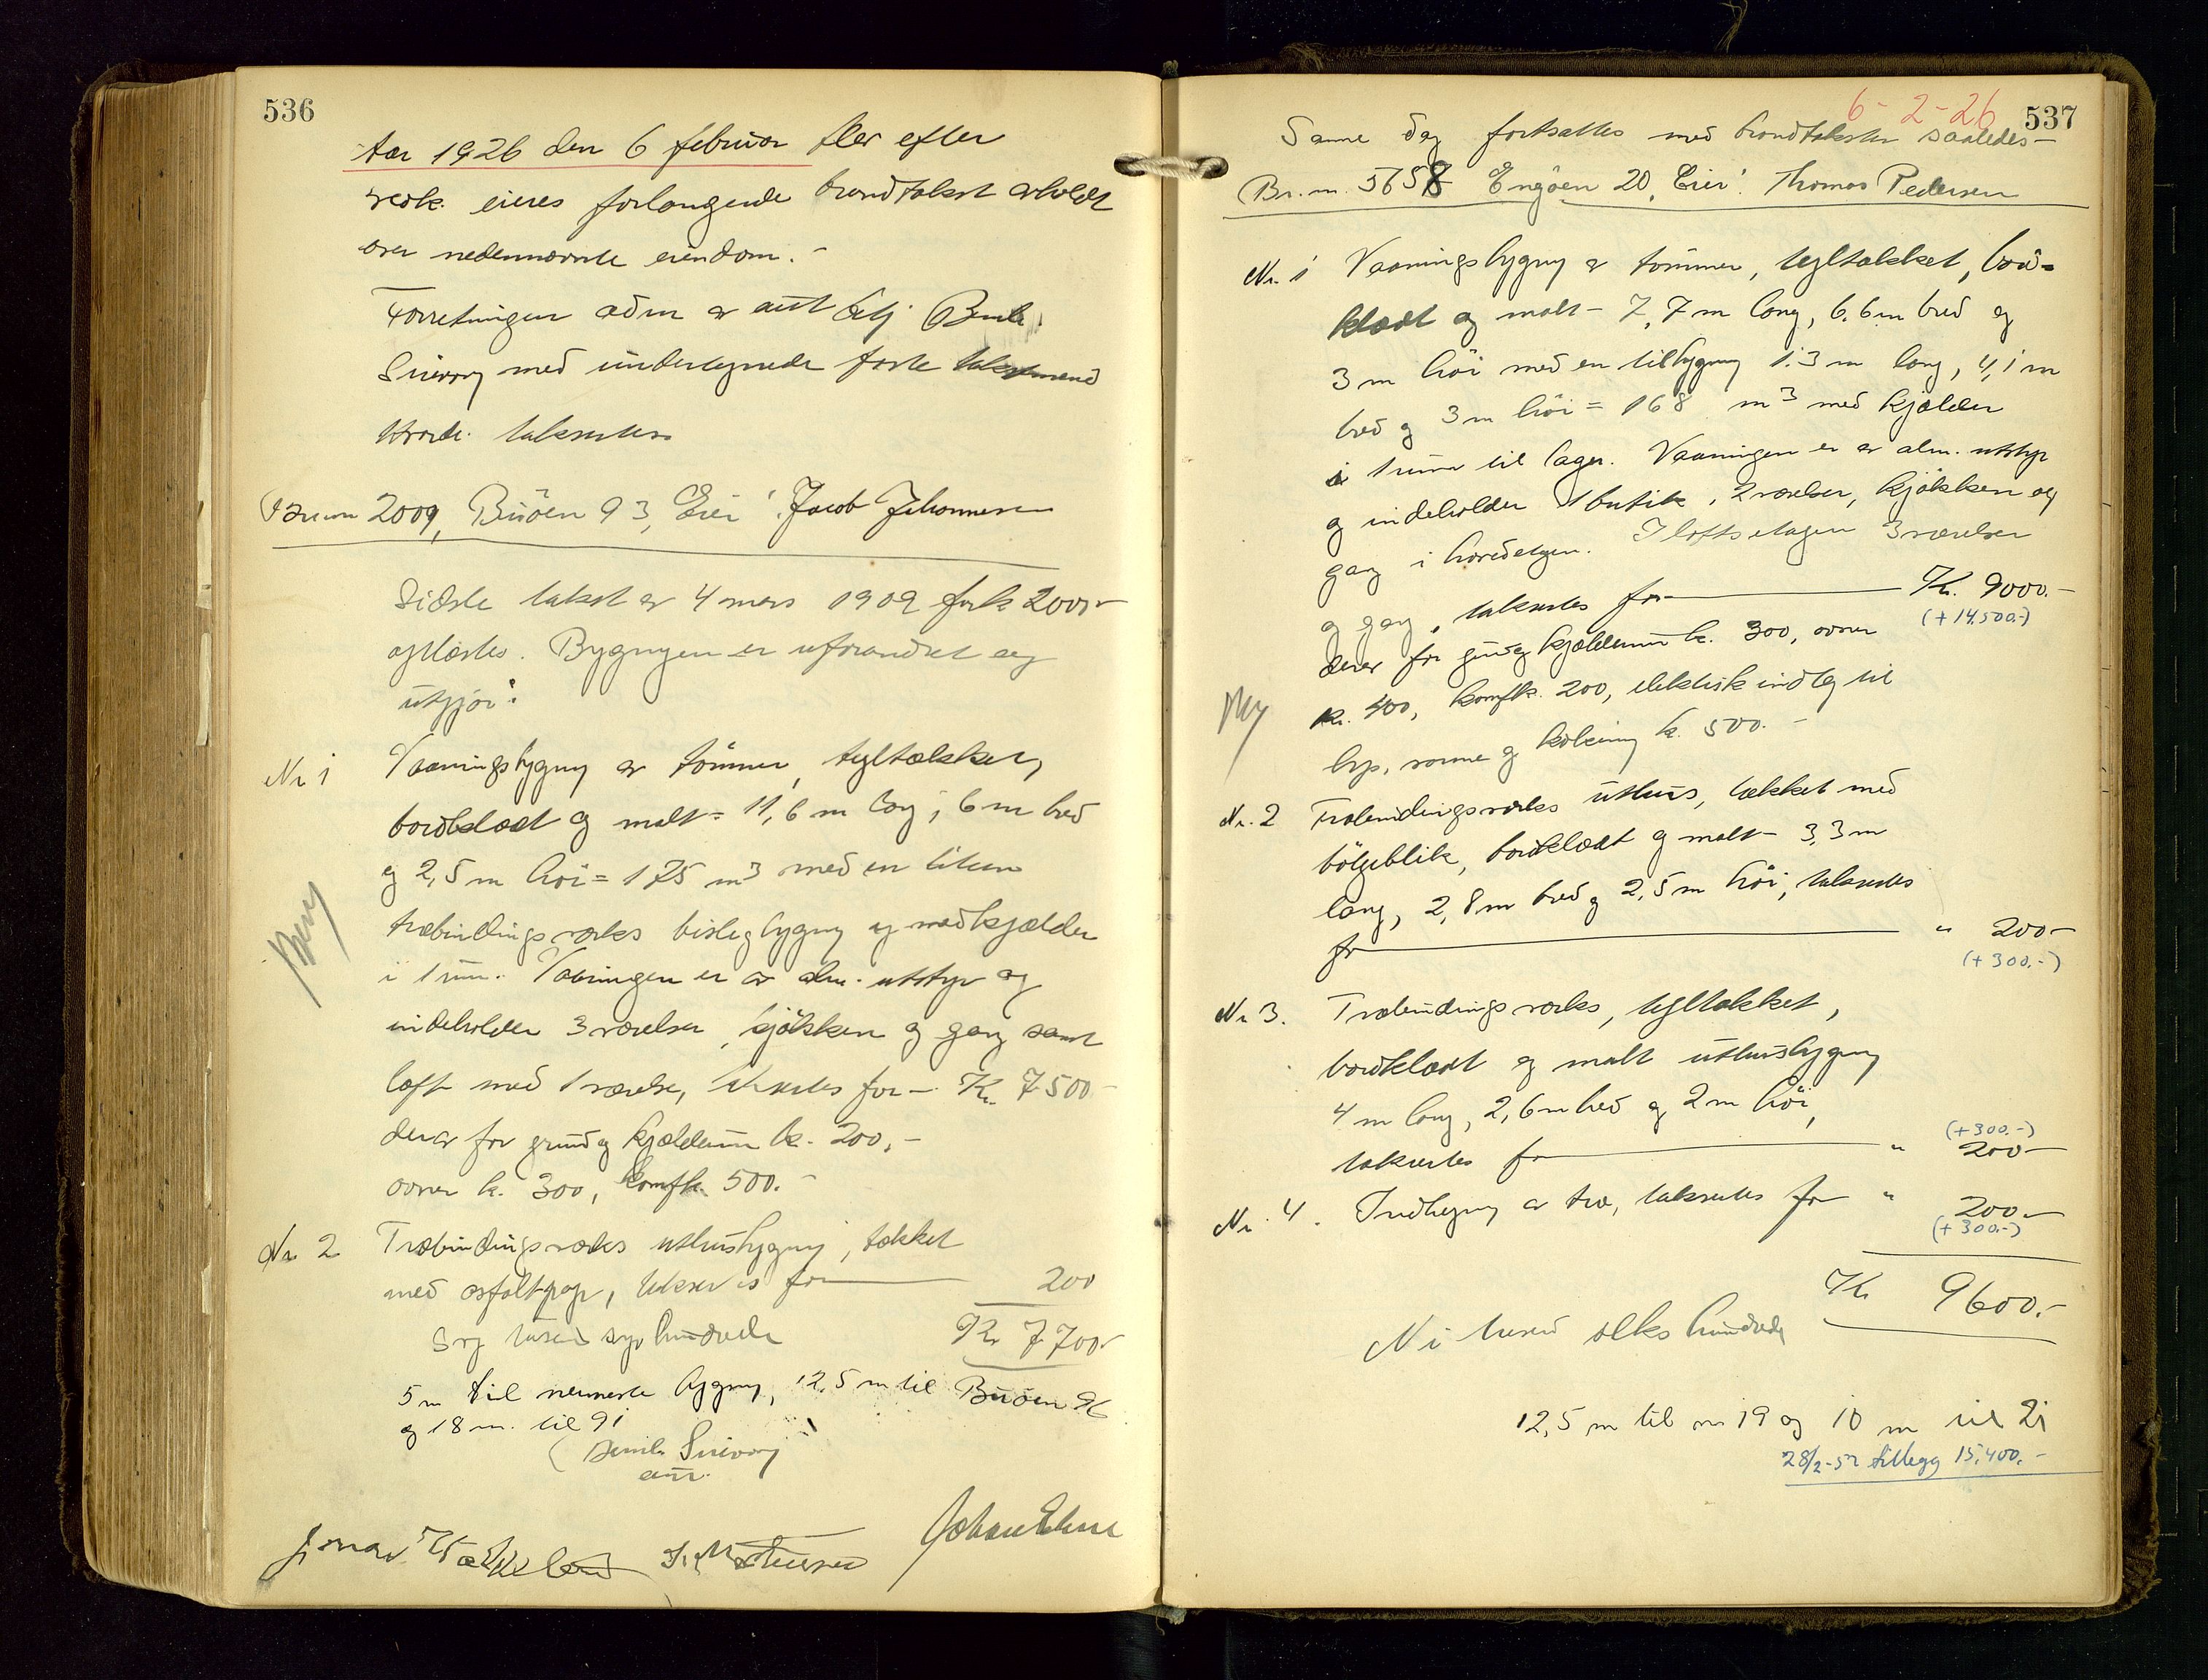 536
Aar 1926 den 6 februar blev efter
vedk. eieres forlangende brandtakst avholdt
over nedennævnte eiendom.-
Forretningen adm av aut
med undertegnede faste takstmænd
takseredes
2009, Buöen 93, Eier: Jacob Johannesen
Sidste takst av 4 mars 1909 for k 2000.-
oplæstes. Bygningen er uforandret og
utgjör:
Nr 1 Vaaningsbygning av tömmer, tegltækket,
bordklædt og malt = 11,6 m lang, 6 m bred
og 2,5 m höi = 175 m3 med en liten
træbindingsverks bislagbygning og med kjælder
i 1 rum. Vaaningen er av alm. utstyr og
indeholder 3 værelser, kjökken og gang samt
loft med 1 værelse, takseredes for - Kr. 7500.-
derav for grund og kjælderrum kr. 200,-
ovner kr. 300, komfk. 500.-
Nr 2 Træbindingsverks uthusbygning, tækket
med asfaltpap, takseredes for — 200
Syv tusen syv hundrede Kr 7700.-
5 m til nærmeste bygning, 12,5 m til Buöen 96
og 18 m. til 91
537
6-2-26
Samme dag fortsattes med brandtakster saaledes-
Br. nr. 5658 Engöen 20, Eier: Thomas Pedersen
Nr. 1 Vaaningsbygning av tömmer, tegltækket, bord-
klædt og malt - 7,7 m lang, 6,6 m bred og
3 m höi med en tilbygning 1.3 m lang, 4,1 m
bred og 3 m höi = 168 m3 med kjælder
i 1 rum til lager. Vaaningen er av alm. utstyr
og indeholder 1 butik, 2 værelser, kjökken og
gang i hovedetagen. I loftsetagen 3 værelser
og gang, takseredes for — Kr. 9000.-
(+14.500.-)
derav for grund og kjælderrum kr. 300, ovner
kr. 400, komfk. 200, elektrisk indlæg til
lys, varme og kokning kr. 500.-
Nr. 2 Træbindingsverks uthus, tækket med
bölgeblik, bordklædt og malt - 3,3 m
lang, 2,8 m bred og 2,5 m höi, takseredes
for — " 200.-
(+300.-)
Nr 3. Træbindingsverks, tegltækket,
bordklædt og malt uthusbygning
4 m lang, 2,6 m bred og 2 m höi,
(+300.-)
takseredes for — " 200.-
Nr. 4. Indhegning av træ, takseredes for " 200.-
(+300.-)
Kr 9600.-
Ni tusen seks hundrede
12,5 m til nr 19 og 10 m til 21
28/2-52 tillegg 15.400.-